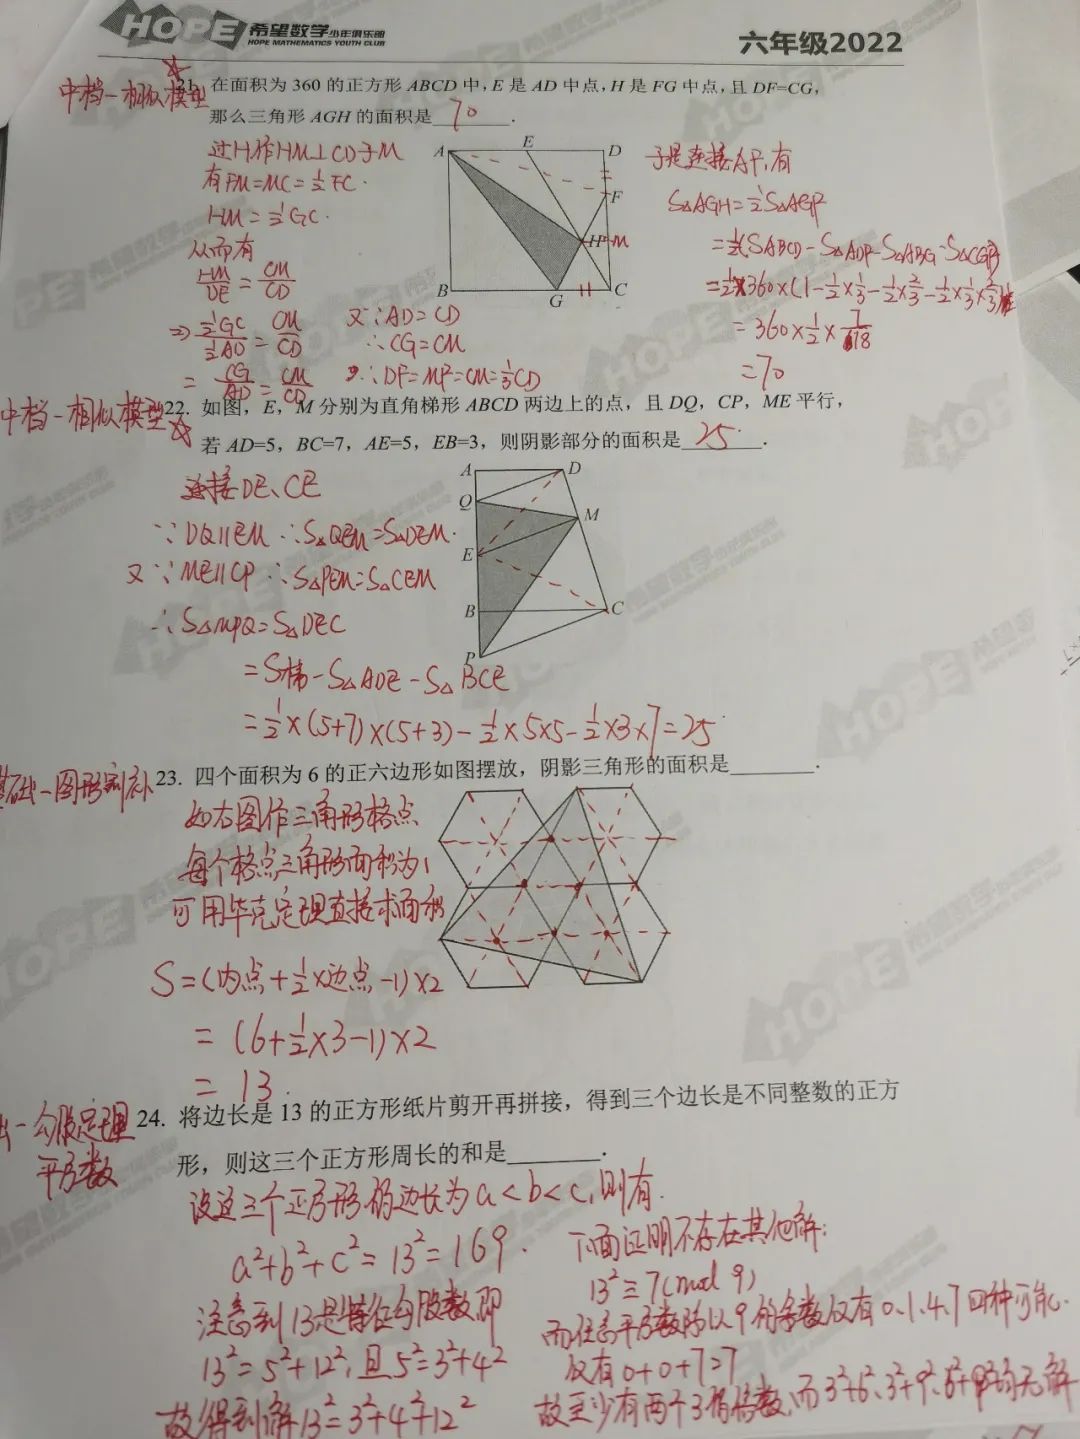 HOPE 希望数学少年俱乐部
HOPE MATHEMATICS YOUTH CLUB
六年级2022
中档-相似模型
21. 在面积为 360 的正方形 ABCD 中, E 是 AD 中点, H 是 FG 中点, 且 DF=CG,
那么三角形 AGH 的面积是 70 .
过H作HM⊥CD于M
有FM=MC=½FC.
HM=½GC.
从而有
HM/DE=CM/CD
⇒ ½GC/½AD=CM/CD
= CG/AD=CM/CD
又∵AD=CD
∴CG=CM
∴DF=MF=CM=⅓CD
A E D
F
H M
B G C
于是连接AF,有
S△AGH=½S△AGF
=½(SABCD-S△ADF-S△ABG-S△CGF)
=½×360×(1-½×⅓-½×⅔-½×⅓×⅔)
=360×½×7/18
=70
中档-相似模型
22. 如图, E, M 分别为直角梯形 ABCD 两边上的点, 且 DQ, CP, ME 平行,
若 AD=5, BC=7, AE=5, EB=3, 则阴影部分的面积是 25 .
连接DE、CE
∵DQ∥EM ∴S△QEM=S△DEM.
又∵ME∥CP ∴S△PEM=S△CEM
∴S△MPQ=S△DEC
=S梯-S△ADE-S△BCE
=½×(5+7)×(5+3)-½×5×5-½×3×7=25
A D
Q
M
E
B C
P
基础-图形割补
23. 四个面积为 6 的正六边形如图摆放, 阴影三角形的面积是 .
如右图作三角形格点
每个格点三角形面积为1
可用毕克定理直接求面积
S=(内点+½×边点-1)×2
=(6+½×3-1)×2
=13.
础-勾股定理
平方数
24. 将边长是 13 的正方形纸片剪开再拼接, 得到三个边长是不同整数的正方
形, 则这三个正方形周长的和是 .
设这三个正方形的边长为a<b<c,则有.
a²+b²+c²=13²=169.
注意到13是特征勾股数即
13²=5²+12²,且5²=3²+4²
故得到解13²=3²+4²+12²
下面证明不存在其他解:
13²≡7(mod 9)
而任意平方数除以9的余数仅有0.1.4.7四种可能.
仅有0+0+7=7
故至少有两个3的倍数,而3²+6²、3²+9²、6²+9²均无解